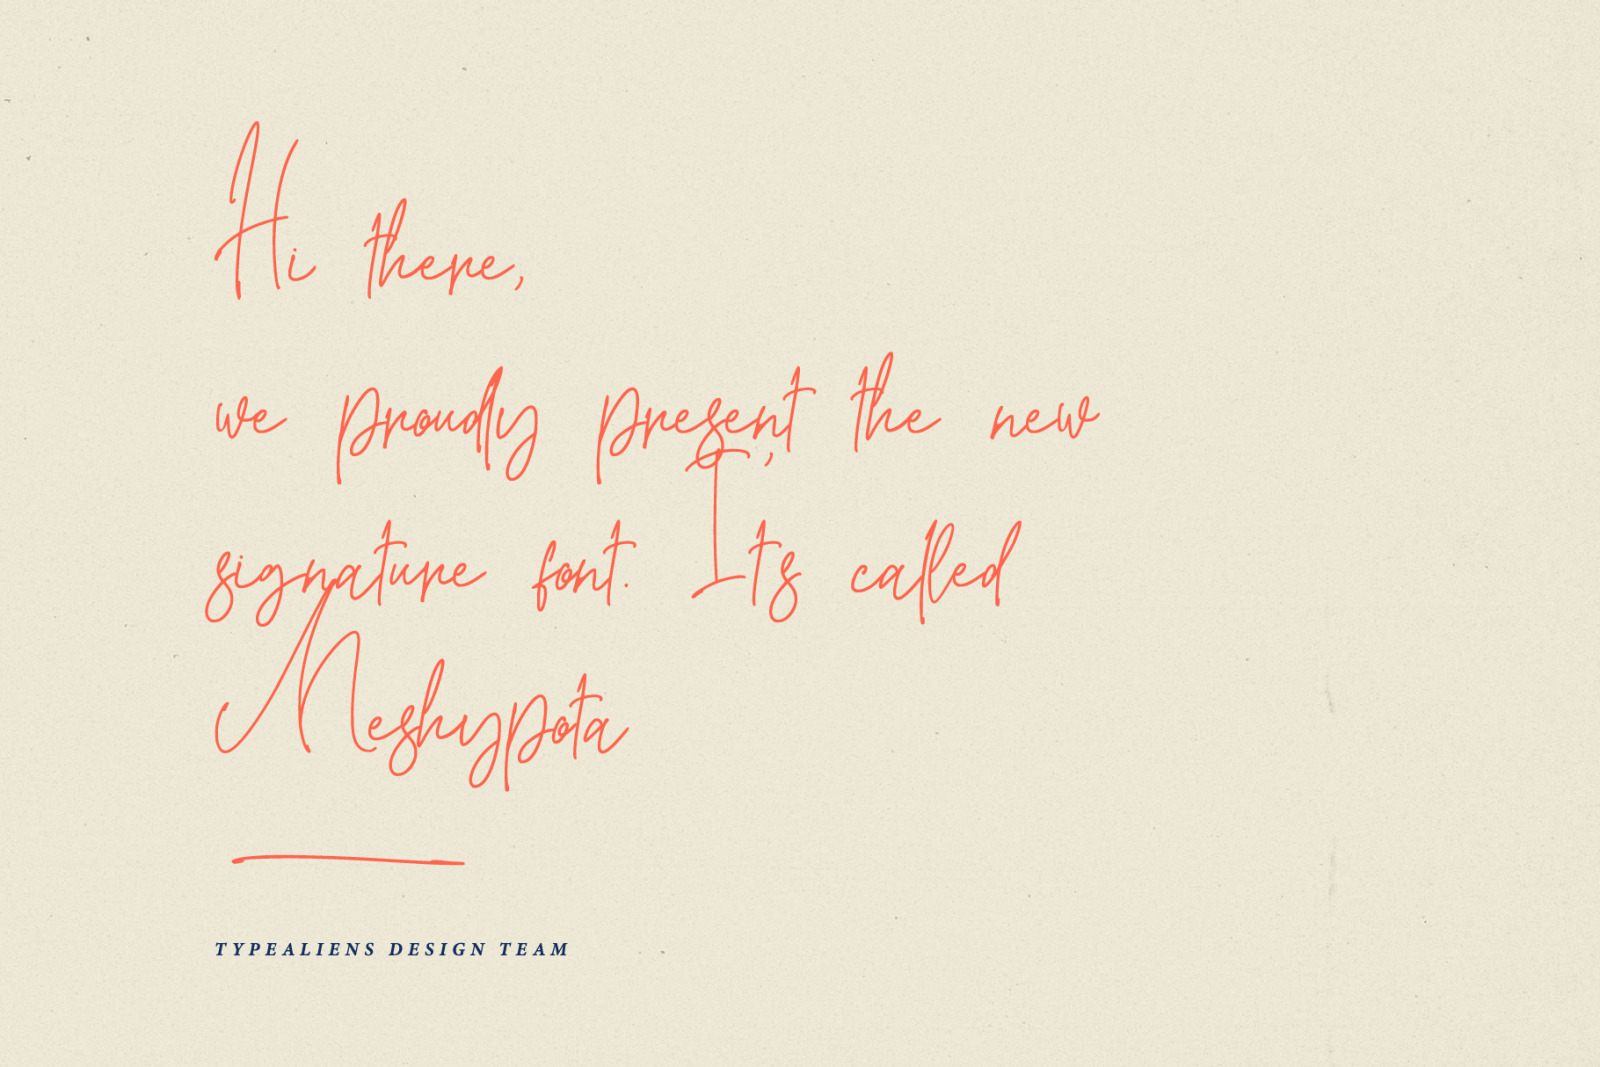 Hi there,
we proudly present the new
signature font. It's called
Meshypota
TYPEALIENS DESIGN TEAM